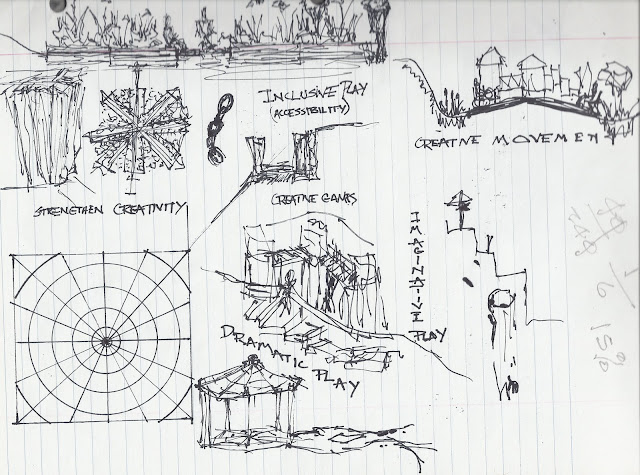 INCLUSIVE PLAY
(ACCESSIBILITY)
CREATIVE MOVEMEN
STRENGTHEN CREATIVITY
CREATIVE GAMES
IMAGINATIVE
PLAY
DRAMATIC PLAY